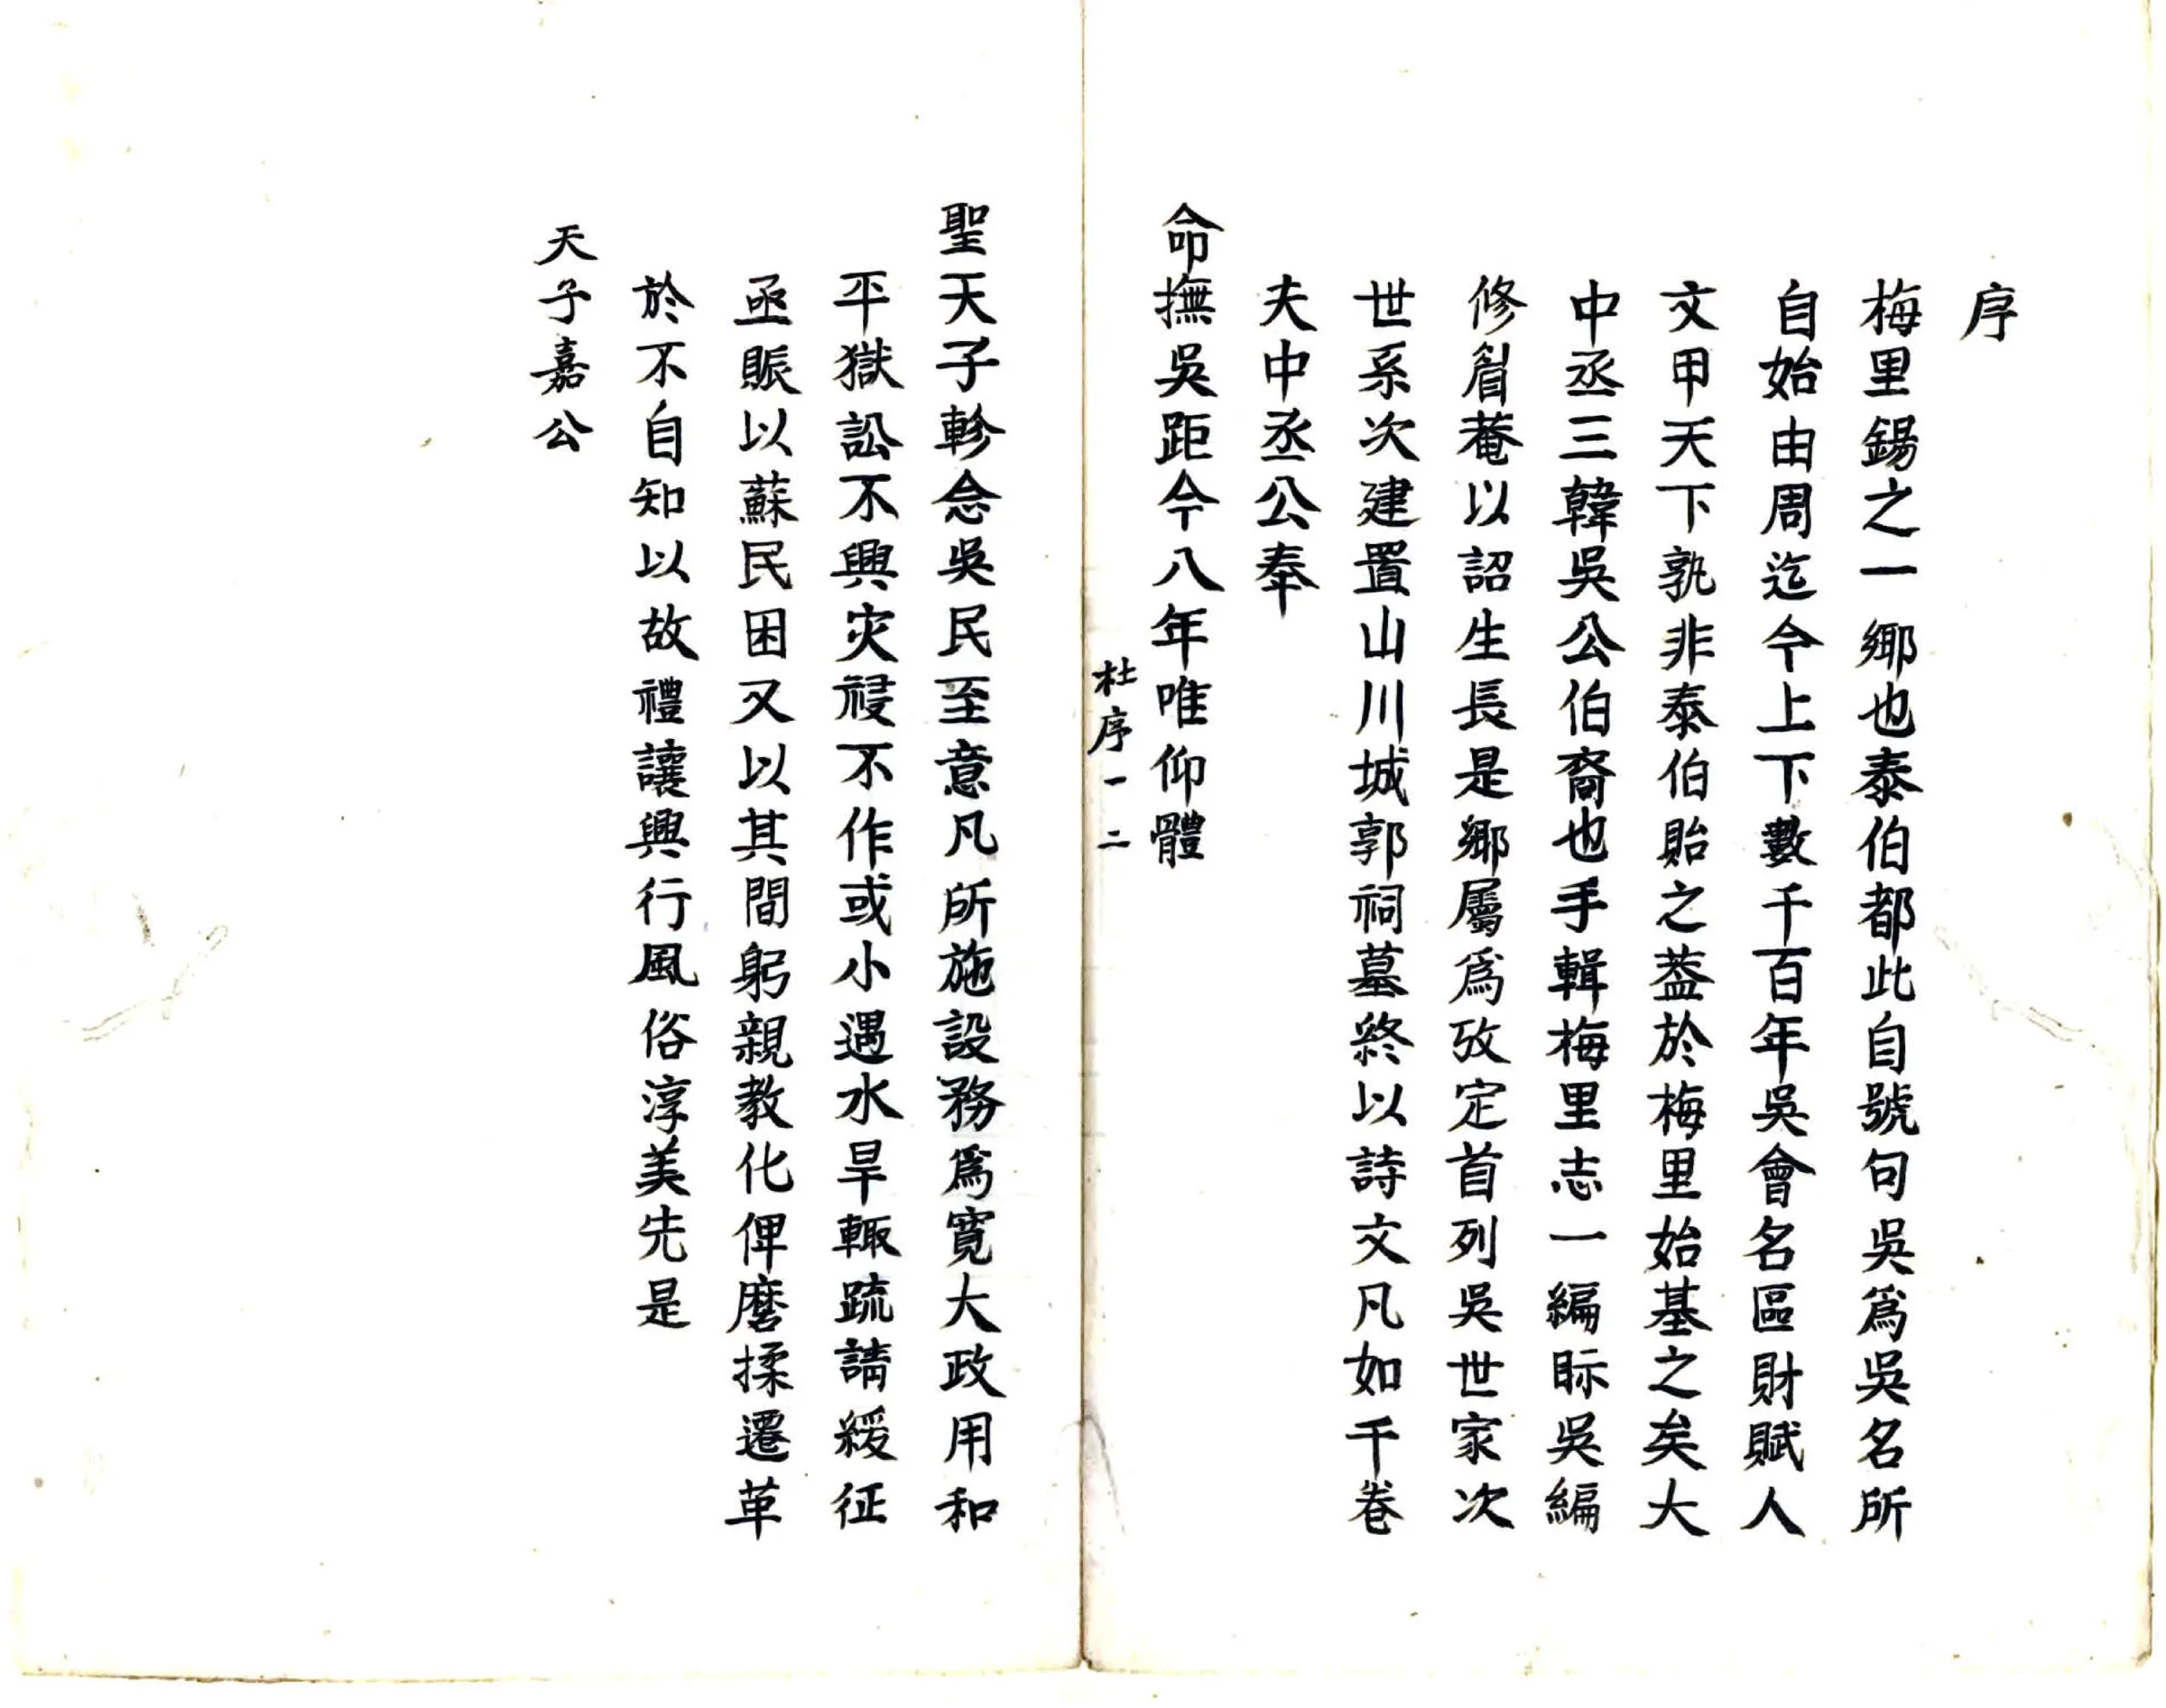 序
梅里錫之一鄉也泰伯都此自號句吳爲吳名所
自始由周迄今上下數千百年吳會名區財賦人
文甲天下孰非泰伯貽之葢於梅里始基之矣大
中丞三韓吳公伯裔也手輯梅里志一編眎吳編
修眉菴以詔生長是鄉屬爲攷定首列吳世家次
世系次建置山川城郭祠墓終以詩文凡如千卷
夫中丞公奉
命撫吳距今八年唯仰體
杜序一 二
聖天子軫念吳民至意凡所施設務爲寬大政用和
平獄訟不興灾祲不作或小遇水旱輒疏請緩征
亟賑以蘇民困又以其間躬親教化俾磨揉遷革
於不自知以故禮讓興行風俗淳美先是
天子嘉公